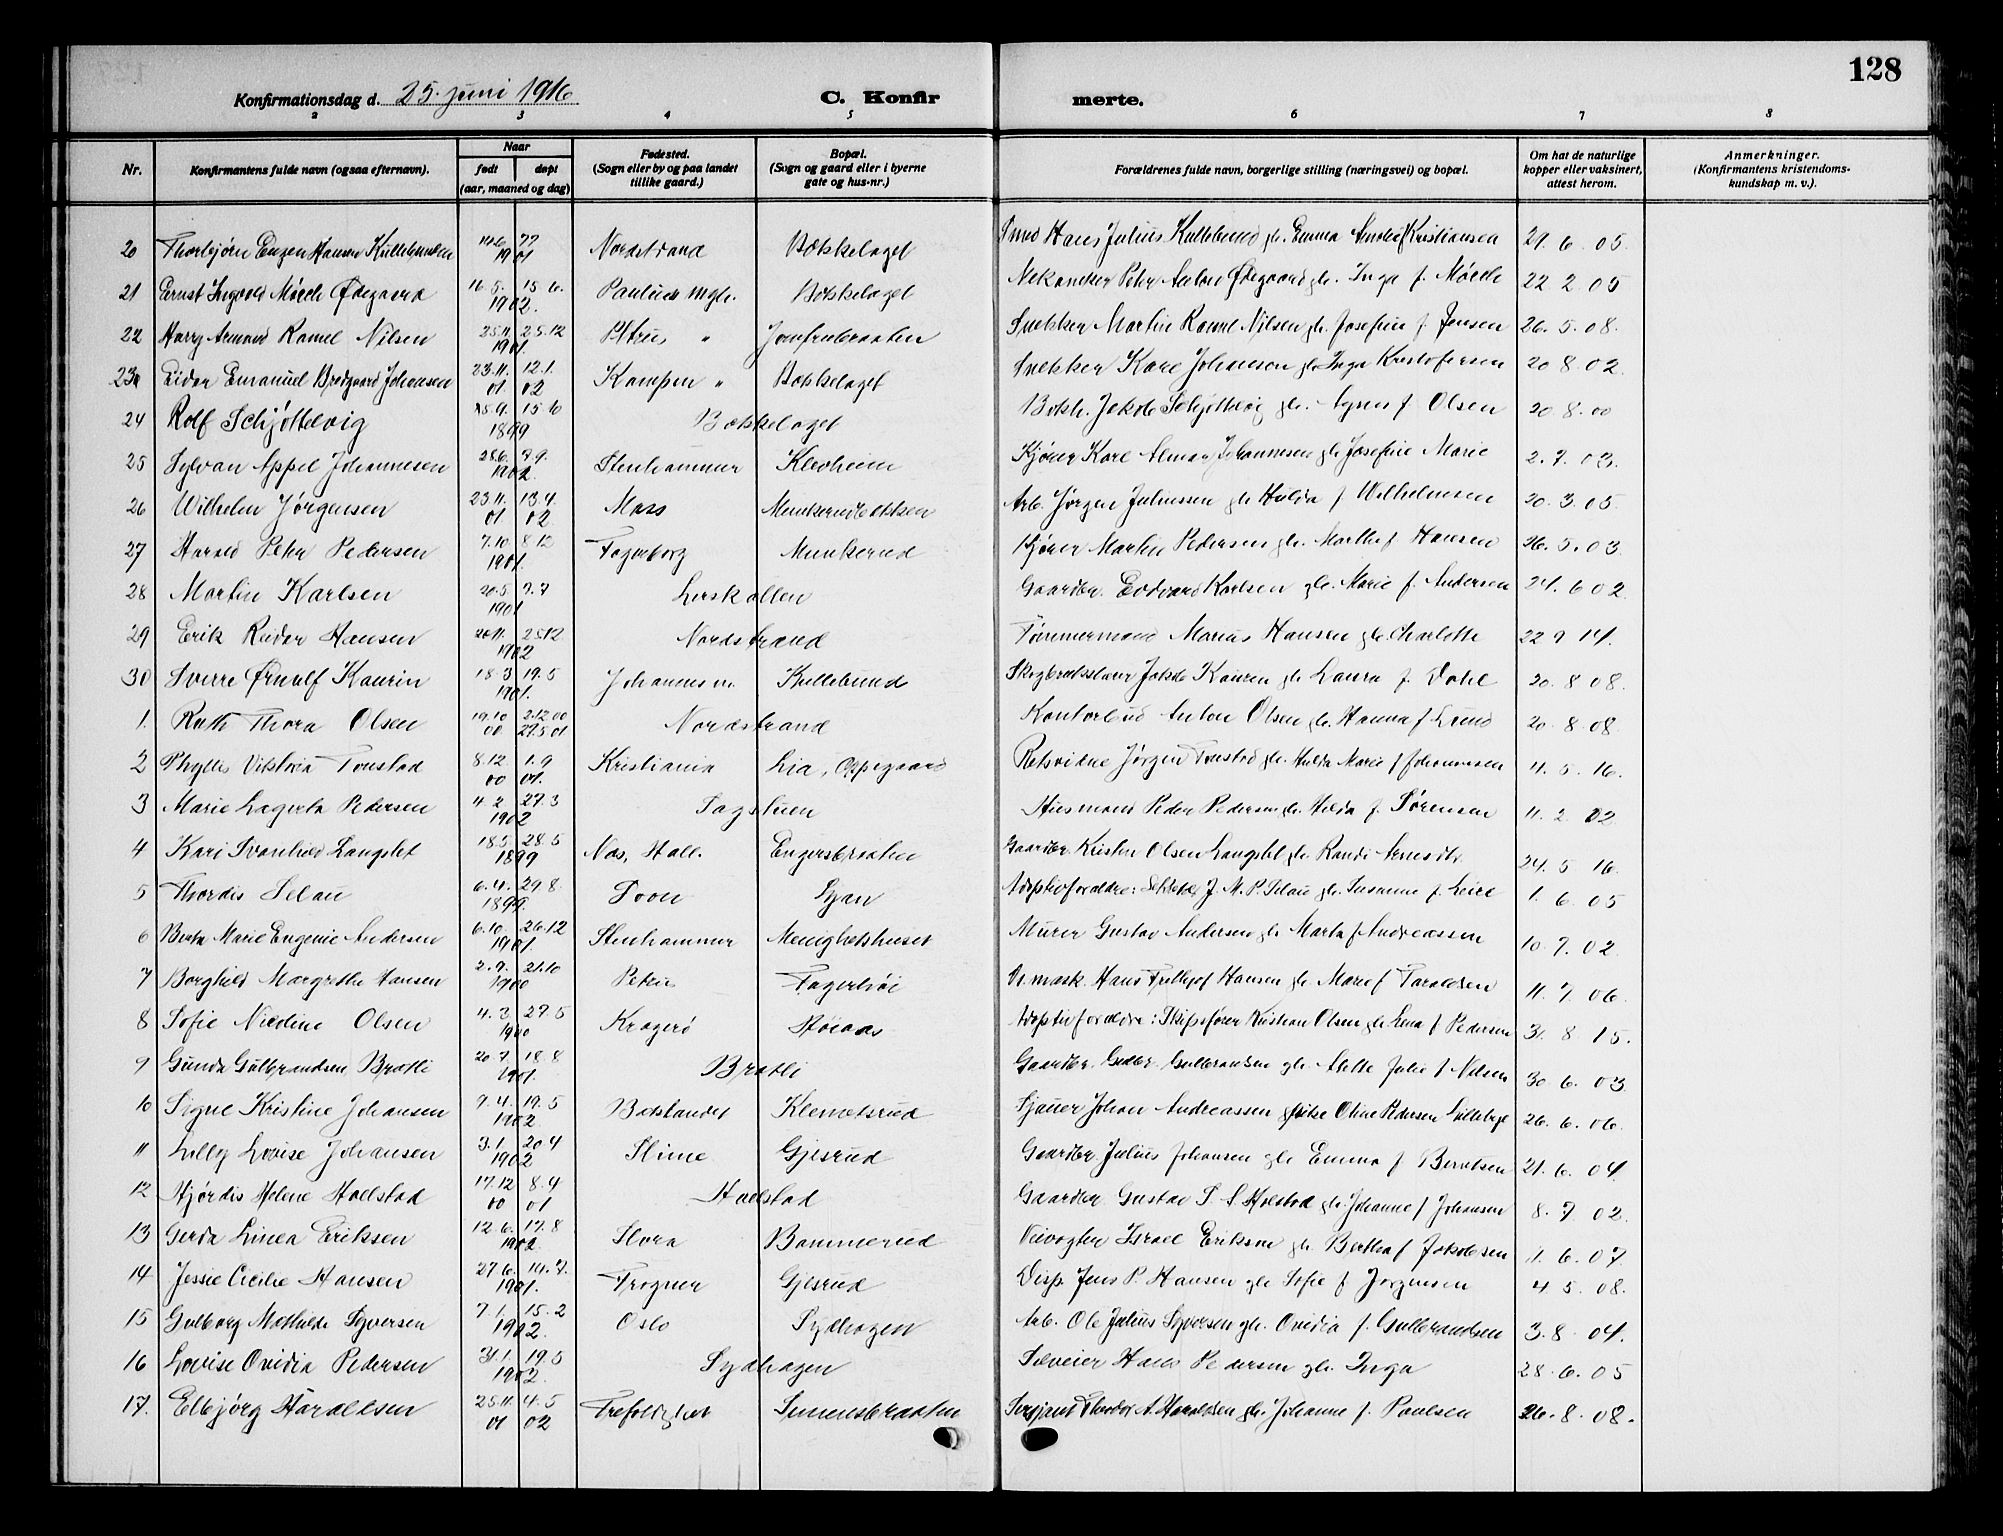 128
Konfirmationsdag d. 25. juni 1916 C. Konfirmerte.
2 3 4 5 6 7 8
Nr. Konfirmantens fulde navn (ogsaa efternavn). Naar født døpt (aar, maaned og dag) Fødested. (Sogn eller by og paa landet tillike gaard.) Bopæl. (Sogn og gaard eller i byerne gate og hus-nr.) Forældrenes fulde navn, borgerlige stilling (næringsvei) og bopæl. Om hat de naturlige kopper eller vaksinert, attest herom. Anmerkninger. (Konfirmantens kristendomskundskap m. v.).
20 Thorbjörn Eugen Hansen Kullebunden 1901 Nordstrand Bækkelaget Smed Hans Julius Kullebund gh. Emma Kristiansen 29. 6. 05.
21 Ernst Ingvald Mørch Ødegaard 16.5. 15.6. 1902. Paulus mgh. Bækkelaget Mekaniker Peter Anton Ødegaard gh. Inga f. Mørch 22 2 05
22 Harry Armand Ramel Nilsen 25.11. 25.12 1901. Petrus " Jomfrubraaten Snekker Martin Ramel Nilsen gh. Josefine f. Jensen 26. 5. 08.
23 Eidar Emanuel Brødgaard Johansen 23.11. 12.1. 01 02 Kampen " Bækkelaget Snekker Karl Johansen gh. Inga Kristofersen 20 8 02.
24 Rolf Schjøttelvig 15.6 1899 Bækkelaget Jakob Schjöttelvig gh. f Olsen 20. 8. 00
25 Sylvan Appel Johannesen 28.6. 7.9. 1902. Stenhammer Kjörer Karl Johannesen gh. Josefine Marie 2. 7. 03.
26 Wilhelm Jörgensen 23.11. 13.4. 01 02 Moss Munkerudbakken Arb. Jörgen Juliussen gh. Hulda f Wilhelmsen 20. 3. 05.
27 Harald Peter Pedersen 7.10 8 12 1901. Fagerborg Munkerud Kjörer Martin Pedersen gh. Marthe f Hansen 26. 5. 03
28 Martin Karlsen 20.5 7.7 1901 Lerskallen Gaardbr. Edvard Karlsen gh. Marie f. Andersen 24. 6 02.
29 Erik Reidar Hansen 25.12 1902 Nordstrand Tömmermand Marius Hansen gh. Charlotte 22 9 14.
30 Sverre Ørnulf Kaurin 18.3 19.5 1901. Johannes m. Kullebund Jakob Kaurin gh. Laura f. Dahl 20. 8 08.
1. Ruth Thora Olsen 19.10 00 2.12.00 27.5 01 Nordstrand Kontorbud Anton Olsen gh. Hanna f Lund 20. 8. 08.
2 Phyllis Viktoria Tonstad 8.12 1.9 00 01. Kristiania Lia, Oppegaard Retsvidne Jörgen Tonstad gh. Hulda Marie f Johannesen 4. 5. 16.
3 Marie Lagerta Pedersen 4.2. 27.3 1902 Husmand Peder Pedersen gh. Hilda f. Sörensen 11. 2. 02
4 Kari Svanhild Langslet 18.5. 28.5 1899 Nes, Hall. Engersbraaten Gaardbr Kristen Olsen Langslet gh. Randi Arnesdtr. 24. 5 16.
5 Thordis Selau 6.4. 29.8. 1899. Ljan Adoptivforældre: J. M. P. Selau gh. Susanne f. 1. 6. 05
6 Berta Marie Eugenie Andersen 6.10. 26.12 1901. Stenhammer Menighetshuset Murer Gustav Andersen gh. Marta f Andreassen 10. 7. 02.
7 Borghild Margrethe Hansen 2.9. 21.10 1900 Petrus Fagerhöi Hans Fritjof Hansen gh. Marie f Taraldsen 11. 7. 06.
8 Sofie Nicoline Olsen 4.3 27.5 1900 Kragerö Høiaas Adoptivforældre: Skipsförer Kristian Olsen gh. Lena f Pedersen 31. 8 15.
9 Gunda Gulbrandsen Bratli 20.7. 18.8 1901. Bratli Gaardbr. Gulbr. Gulbrandsen gh. Alette Julie f Nilsen 30. 6. 03
10 Signe Kristine Johansen 9.4. 19.5 1902 Klemetsrud Sjauer Johan Andreassen Oline Pedersen Lillebye 26. 6. 06.
11 Lilly Lovise Johansen 3.1. 20.4 1902 Slime Gjesrud Gaardbr. Julius Johansen gh Emma f. Berntsen 21. 6. 04.
12 Hjørdis Helene Holstad 17.12 8.4 00 01 Holstad Gaardbr Gustav Holstad gh. Johanne f Johansen 8. 7. 02.
13 Gerda Linea Eriksen 12.6. 17.8 1902. Slora Bommerud Veivogter Israel Eriksen gh Berthe f Jakobsen 11. 6. 07.
14 Jessie Cicilie Hansen 27.6. 14.7. 1901. Frogner Gjesrud Disp. Jens P. Hansen gh. Sofie f Jörgensen 4 5. 08.
15 Gulborg Mathilde Syversen 7.1. 15.2 1902. Oslo Sydhagen Arb. Ole Julius Syversen gh. Ovidia f. Gulbrandsen 3. 8. 04.
16 Lovise Ovidia Pedersen 31.1. 19.5 1902. Sydhagen Hans Pedersen gh. Inga 28. 6. 05
17. Elbjörg Haraldsen 25.11. 4.5 01 02 Trefoldighet Simensbraaten Sersjant Theodor A. Haraldsen gh. Johanne f. Paulsen 26. 8. 08.